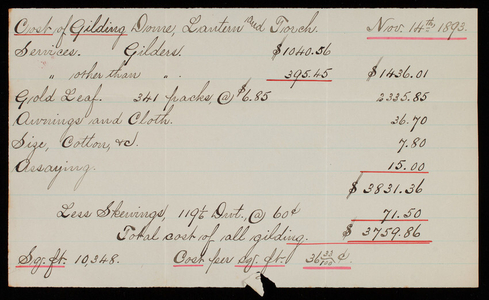 Cost of Gilding Dome, Lantern and Torch. Nov. 14th, 1893.
Services. Gilders. $1040.56
" other than " . 395.45 $1436.01
Gold Leaf. 341 packs, @ $6.85 2335.85
Awnings and Cloth. 36.70
Size, Cotton, &c. 7.80
Assaying. 15.00
$3831.36
Less Skewings, 119 1/6 Dwt. @ 60¢ 71.50
Total cost of all gilding. $3759.86
Sq. ft. 10,348. Cost per sq. ft. 36 33/100 ¢.